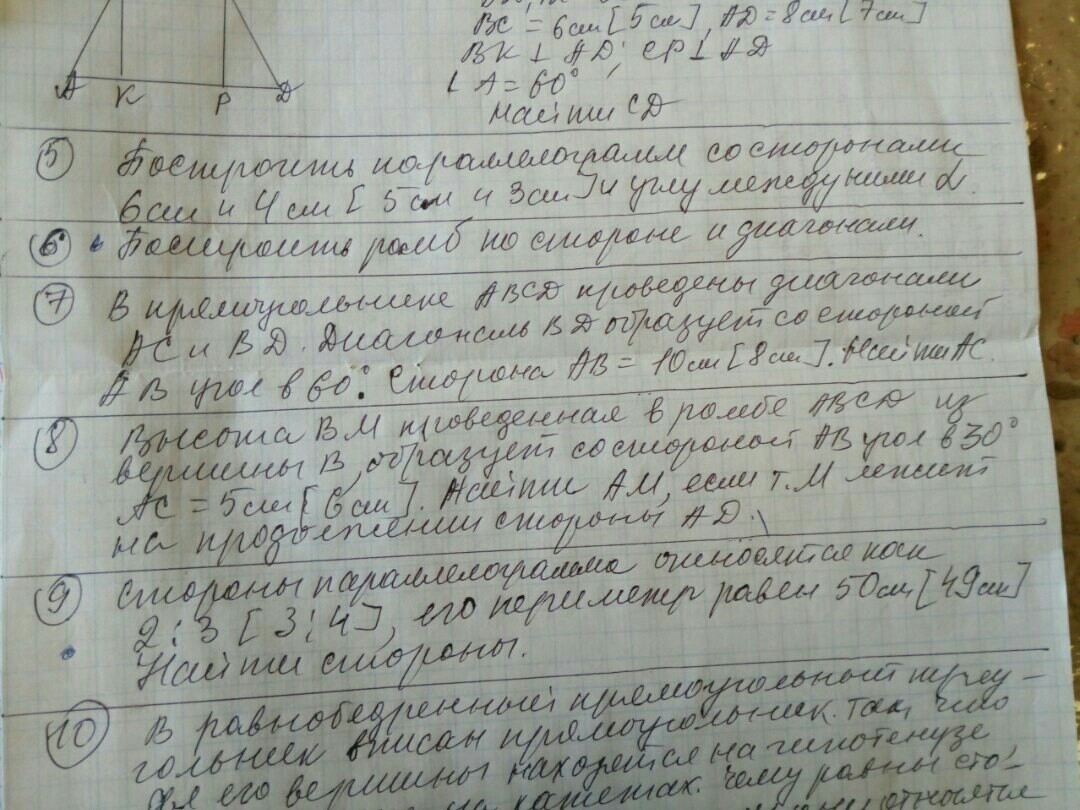 BC = 6см [5см], AD = 8см [7см]
BK ⊥ AD; CP ⊥ AD
∠A = 60°
Найти CD
A K P D
5 Построить параллелограмм со сторонами
6см и 4см [5см и 3см] и углу между ними α.
6 Построить ромб по стороне и диагонали.
7 В прямоугольнике ABCD проведены диагонали
AC и BD. Диагональ BD образует со стороной
AB угол в 60°. Сторона AB = 10см [8см]. Найти AC.
8 Высота BM проведенная в ромбе ABCD из
вершины B, образует со стороной AB угол в 30°
AC = 5см [6см]. Найти AM, если т. M лежит
на продолжении стороны AD.
9 Стороны параллелограмма относятся как
2:3 [3:4], его периметр равен 50см [49см]
Найти стороны.
10 В равнобедренный прямоугольный треу-
гольник вписан прямоугольник так, что
его вершины находятся на гипотенузе
на катетах. Чему равны сто-
относятся